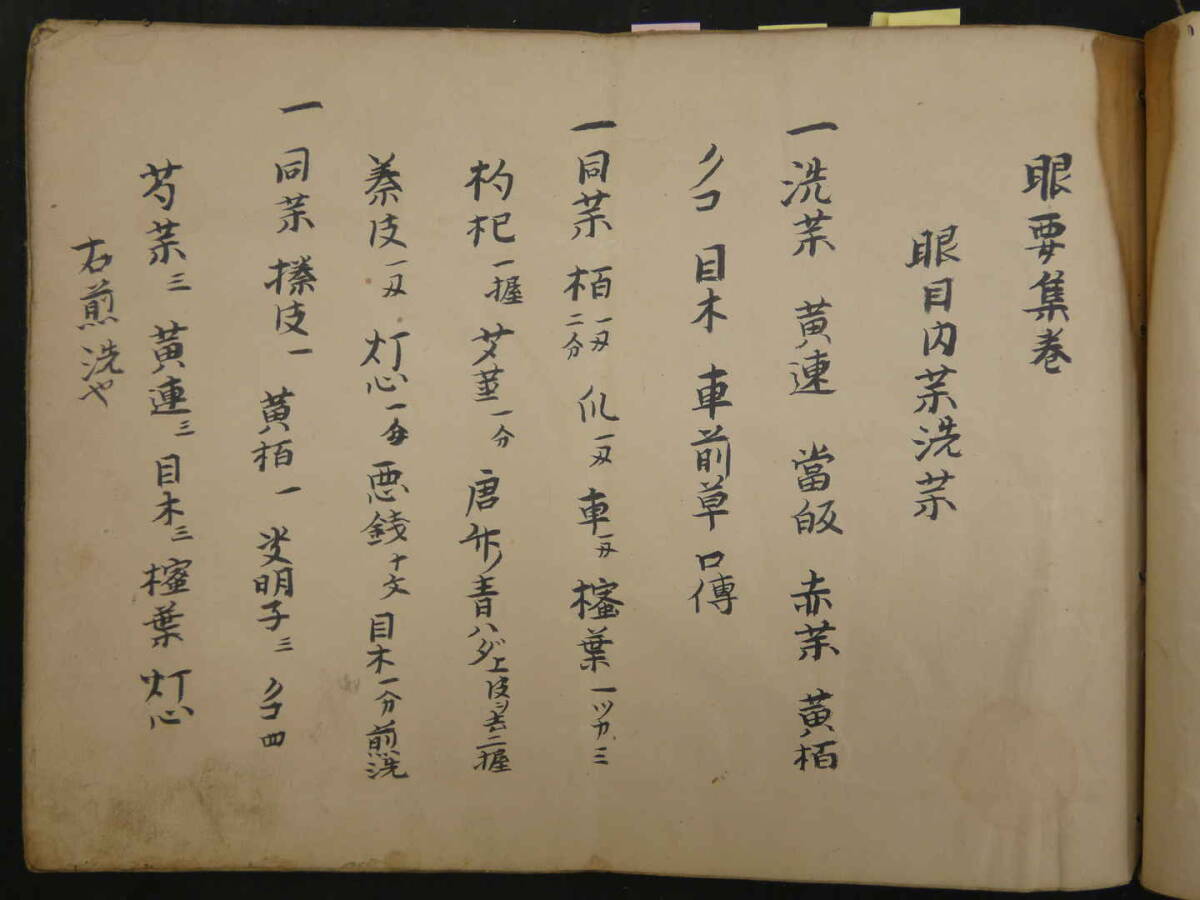 眼要集巻
眼目内茶洗茶
一 洗茶 黄連 當皈 赤茶 黄栢
クコ 目木 車前草 口傳
一 同茶 栢一匁二分 仉一匁 車一匁 樒葉一ツカミ
杓杞一握 艾葉一分 唐竹青ハダ上皮ヲ去二握
秦皮一匁 灯心一匁 悪銭十文 目木一分煎洗
一 同茶 榛皮一 黄栢一 决明子三 クコ四
芍茶三 黄連三 目木三 樒葉 灯心
右煎洗也